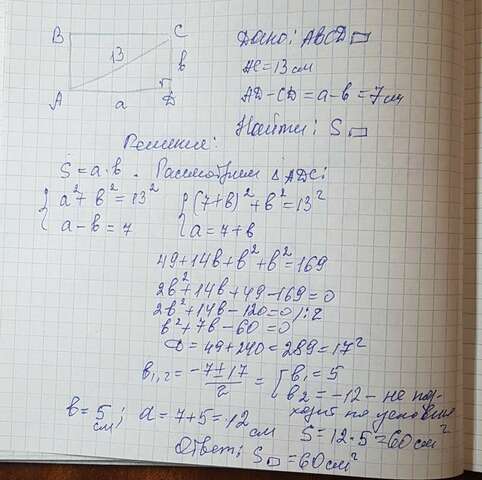 B C
13 в
A a D
Дано: ABCD ▭
AC = 13 см
AD - CD = a - в = 7 см
Найти: S ▭
Решение:
S = a · в. Рассмотрим Δ ADC:
{ a² + в² = 13² { (7+в)² + в² = 13²
{ a - в = 7 { a = 7 + в
49 + 14в + в² + в² = 169
2в² + 14в + 49 - 169 = 0
2в² + 14в - 120 = 0 /:2
в² + 7в - 60 = 0
D = 49 + 240 = 289 = 17²
в₁,₂ = (-7 ± 17)/2 = { в₁ = 5
{ в₂ = -12 - не под-
ходит по условию
в = 5 см; a = 7 + 5 = 12 см
S = 12 · 5 = 60 см²
Ответ: S ▭ = 60 см²